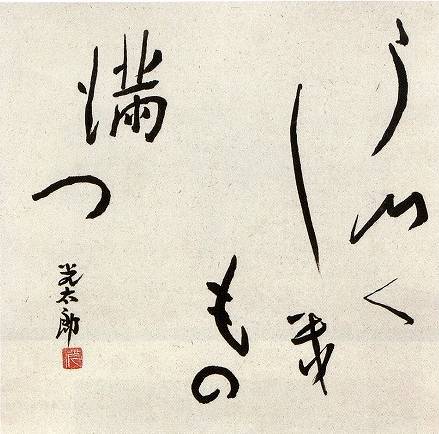 うつく
しき
もの
満つ
光太郎